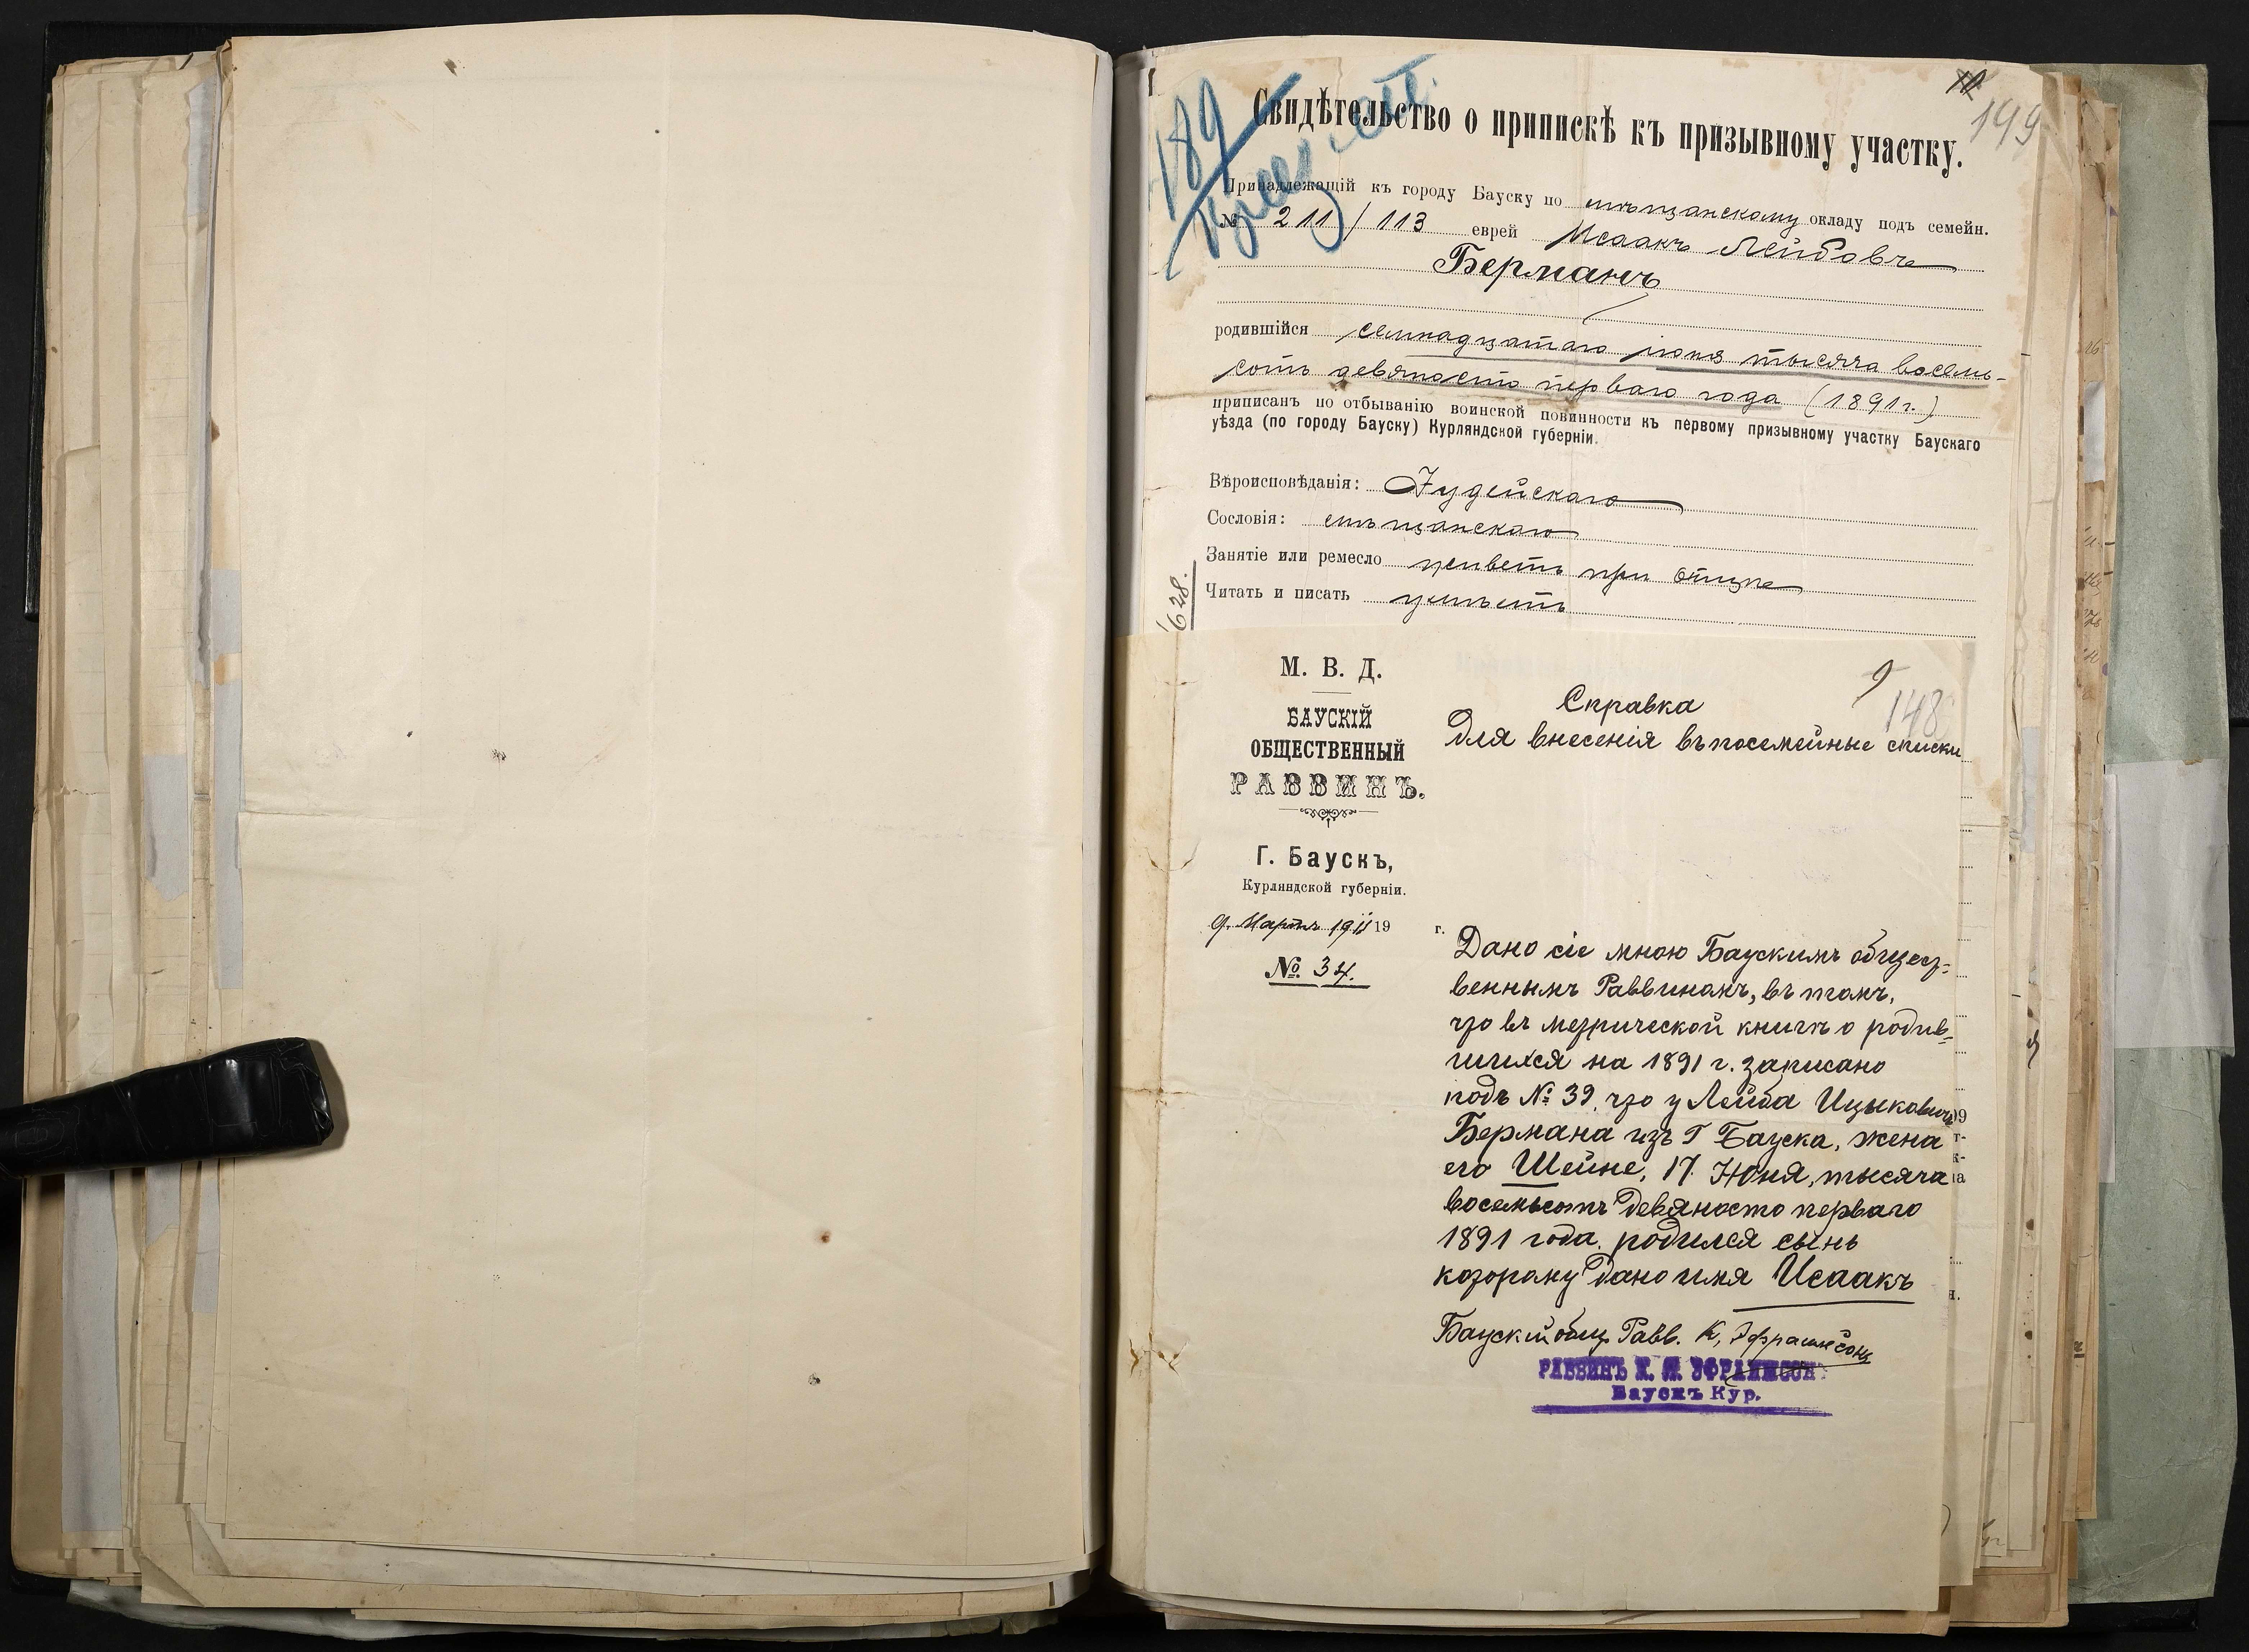 189
10
149
Свидѣтельство о припискѣ къ призывному участку.
Принадлежащій къ городу Бауску по мѣщанскому окладу подъ семейн.
№ 211/113 еврей Исаакъ Лейбовъ
Берманъ
родившійся семнадцатаго іюня тысяча восемь-
сотъ девяносто перваго года (1891 г.)
приписанъ по отбыванію воинской повинности къ первому призывному участку Баускаго
уѣзда (по городу Бауску) Курляндской губерніи.
Вѣроисповѣданія: Іудейскаго
Сословія: мѣщанскаго
Занятіе или ремесло живетъ при отцѣ
Читать и писать умѣетъ
628.
М. В. Д.
БАУСКІЙ
ОБЩЕСТВЕННЫЙ
РАВВИНЪ.
Г. Баускъ,
Курляндской губерніи.
9. Марта 1911 19 г.
№ 34.
9
148
Справка
Для внесенія въ посемейные списки
Дано сіе мною Баускимъ общест-
веннымъ Раввиномъ, въ томъ,
что въ метрической книгѣ о родив-
шихся на 1891 г. записано
подъ № 39, что у Лейба Ицыковича
Бермана изъ Г Бауска, жена
его Шейне, 17 Юня, тысяча
восемьсотъ девяносто перваго
1891 года, родился сынъ
которому дано имя Исаакъ
Баускій общ. Равв. К, Эфраимсонъ
РАВВИНЪ К. М. ЭФРАИМСОНЪ
Баускъ Кур.